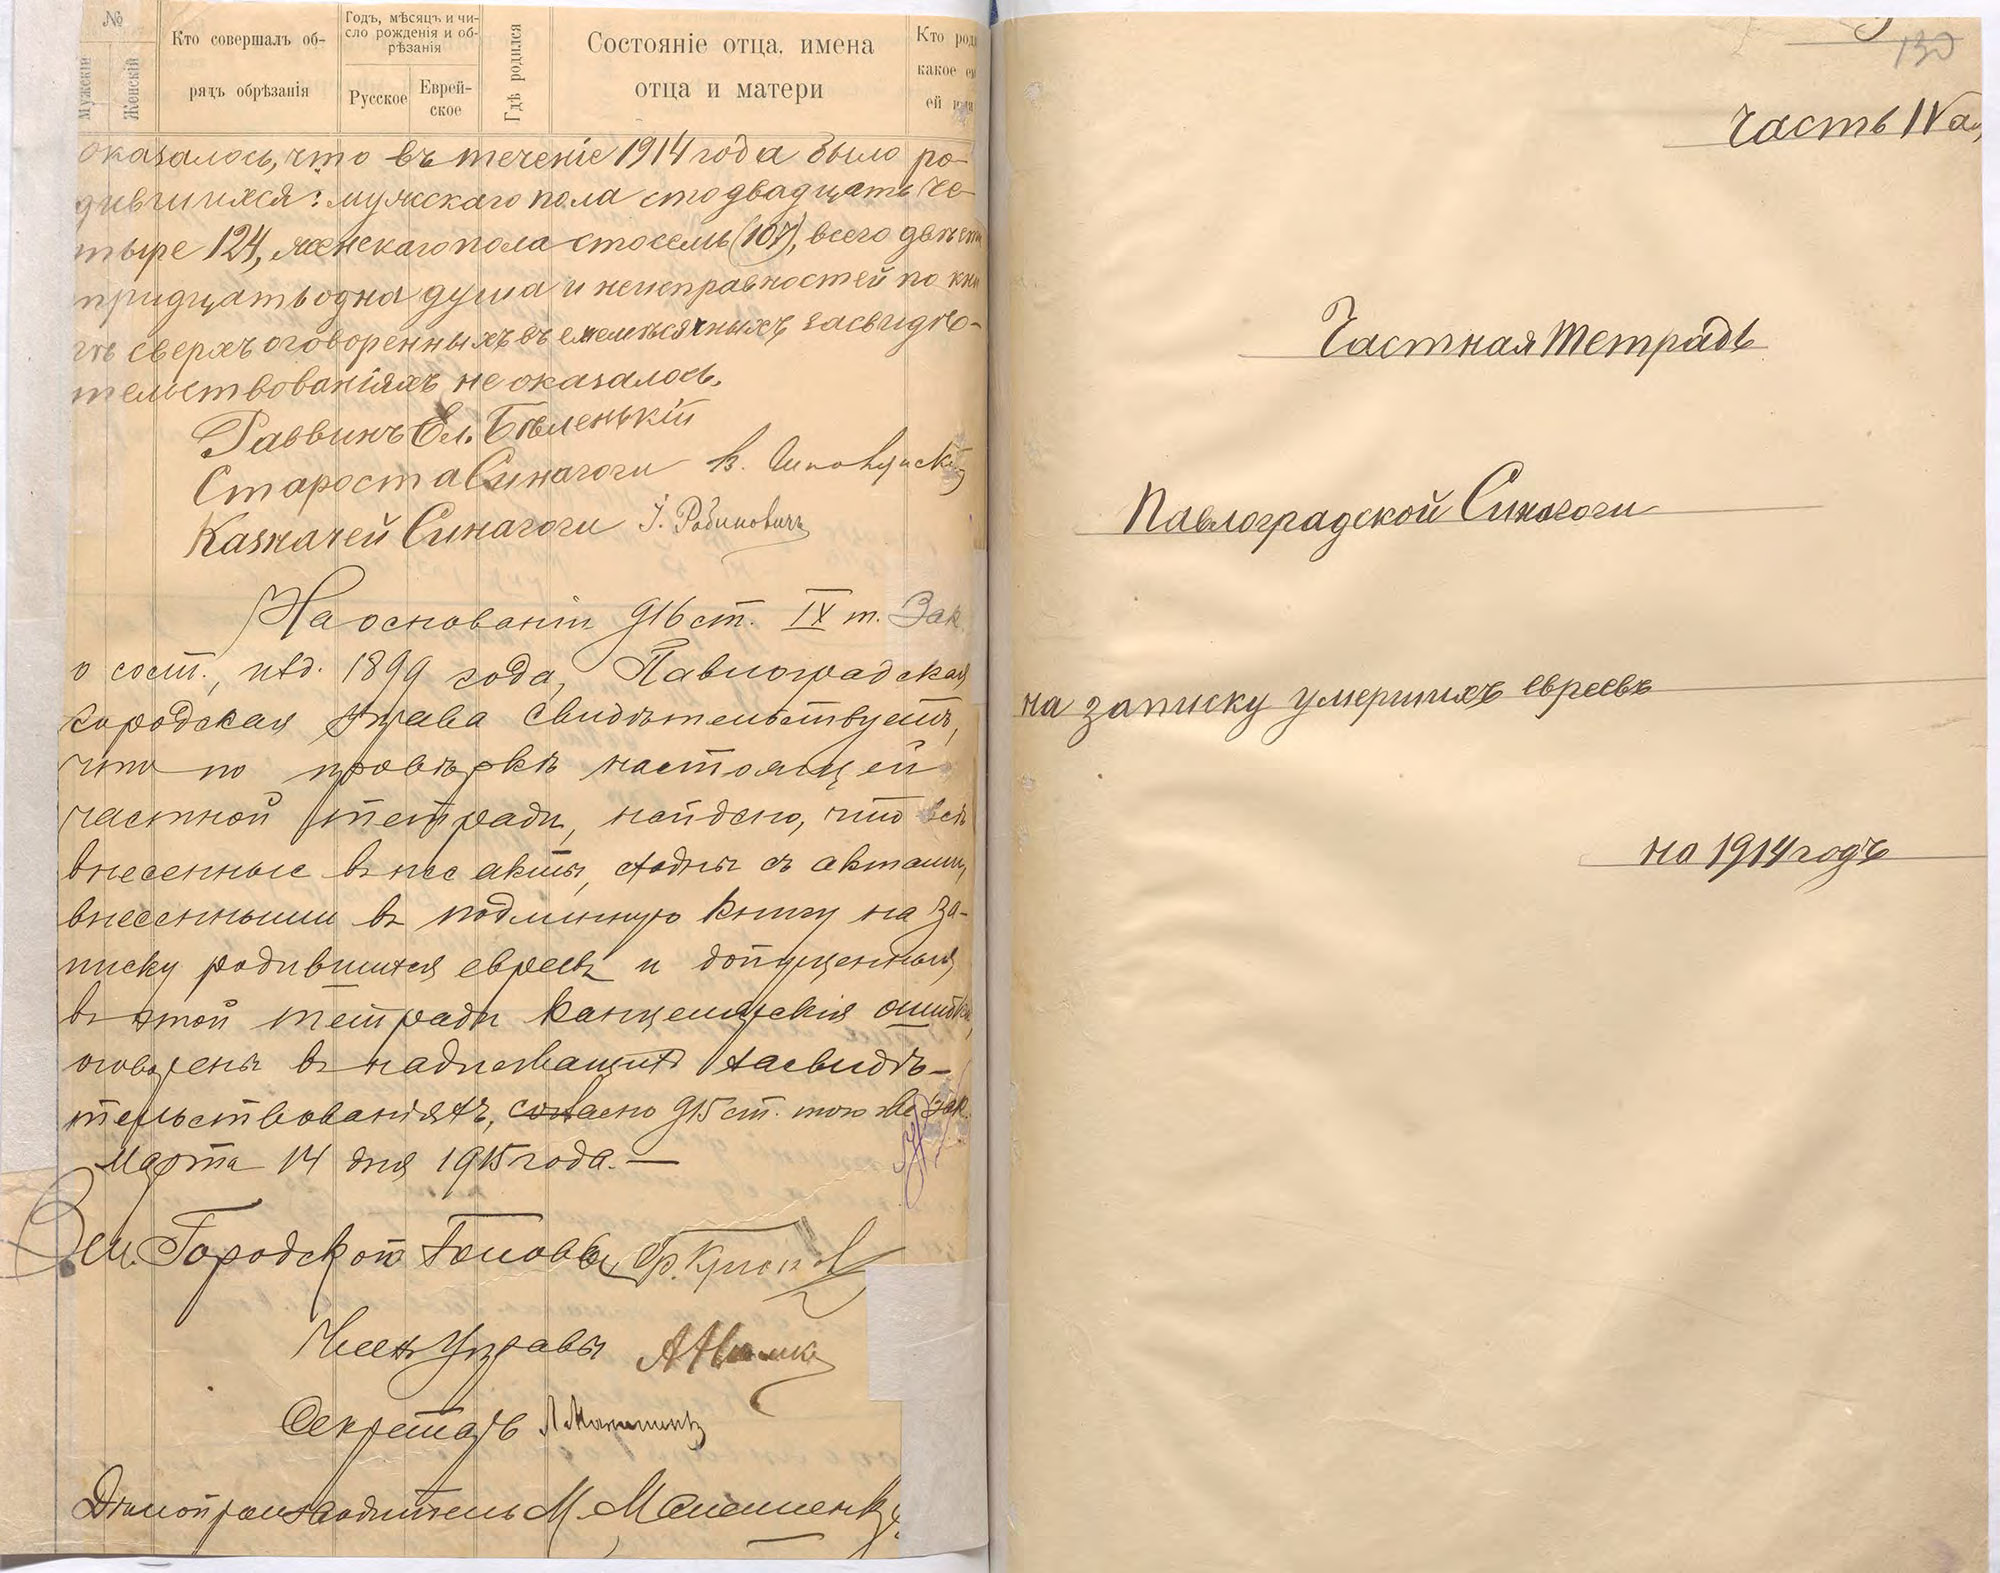 №
Мужскій
Женскій
Кто совершалъ об-
рядъ обрѣзанія
Годъ, мѣсяцъ и чи-
сло рожденія и об-
рѣзанія
Русское
Еврей-
ское
Гдѣ родился
Состояніе отца, имена
отца и матери
Кто род
какое
ей
оказалось, что въ теченіе 1914 года было ро-
дившихся: мужскаго пола сто двадцать че-
тыре 124, женскаго пола сто семь (107), всего двѣсти
тридцать одна душа и неисправностей по кни
гѣ сверхъ оговоренныхъ въ ежемѣсячныхъ засвидѣ-
тельствованіяхъ не оказалось.
Раввинъ Ел. Бѣленькій
Староста Синагоги В.
Казначей Синагоги І. Рабиновичъ
На основаніи 916 ст. IX т. Зак.
о сост., изд. 1899 года, Павлоградская
городская Управа свидѣтельствуетъ,
что по провѣркѣ настоящей
частной тетради, найдено, что всѣ
внесенные въ нее акты, сходны съ актами,
внесенными въ подлинную книгу на за-
писку родившихся евреевъ и допущенныя
въ этой тетради канцелярскія ошибки,
оговорены въ надлежащихъ засвидѣ-
тельствованіяхъ, согласно 915 ст. того же Зак.
Марта 14 дня 1915 года. —
Зам. Городского Головы, Гр.
Членъ Управы
Секретарь
Дѣлопроизводитель М.
130
Часть IV ая
Частная Тетрадь
Павлоградской Синагоги
на записку умершихъ евреевъ
на 1914 годъ